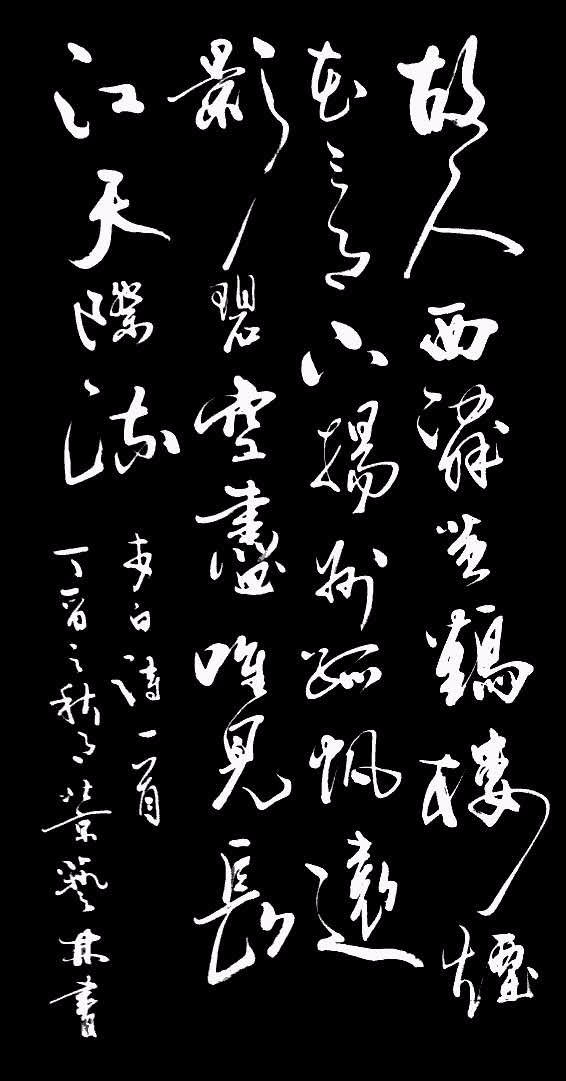 故人西辭黃鶴樓煙
花三月下揚州孤帆遠
影碧空盡唯見長
江天際流
李白詩一首
丁酉之秋月藝林書